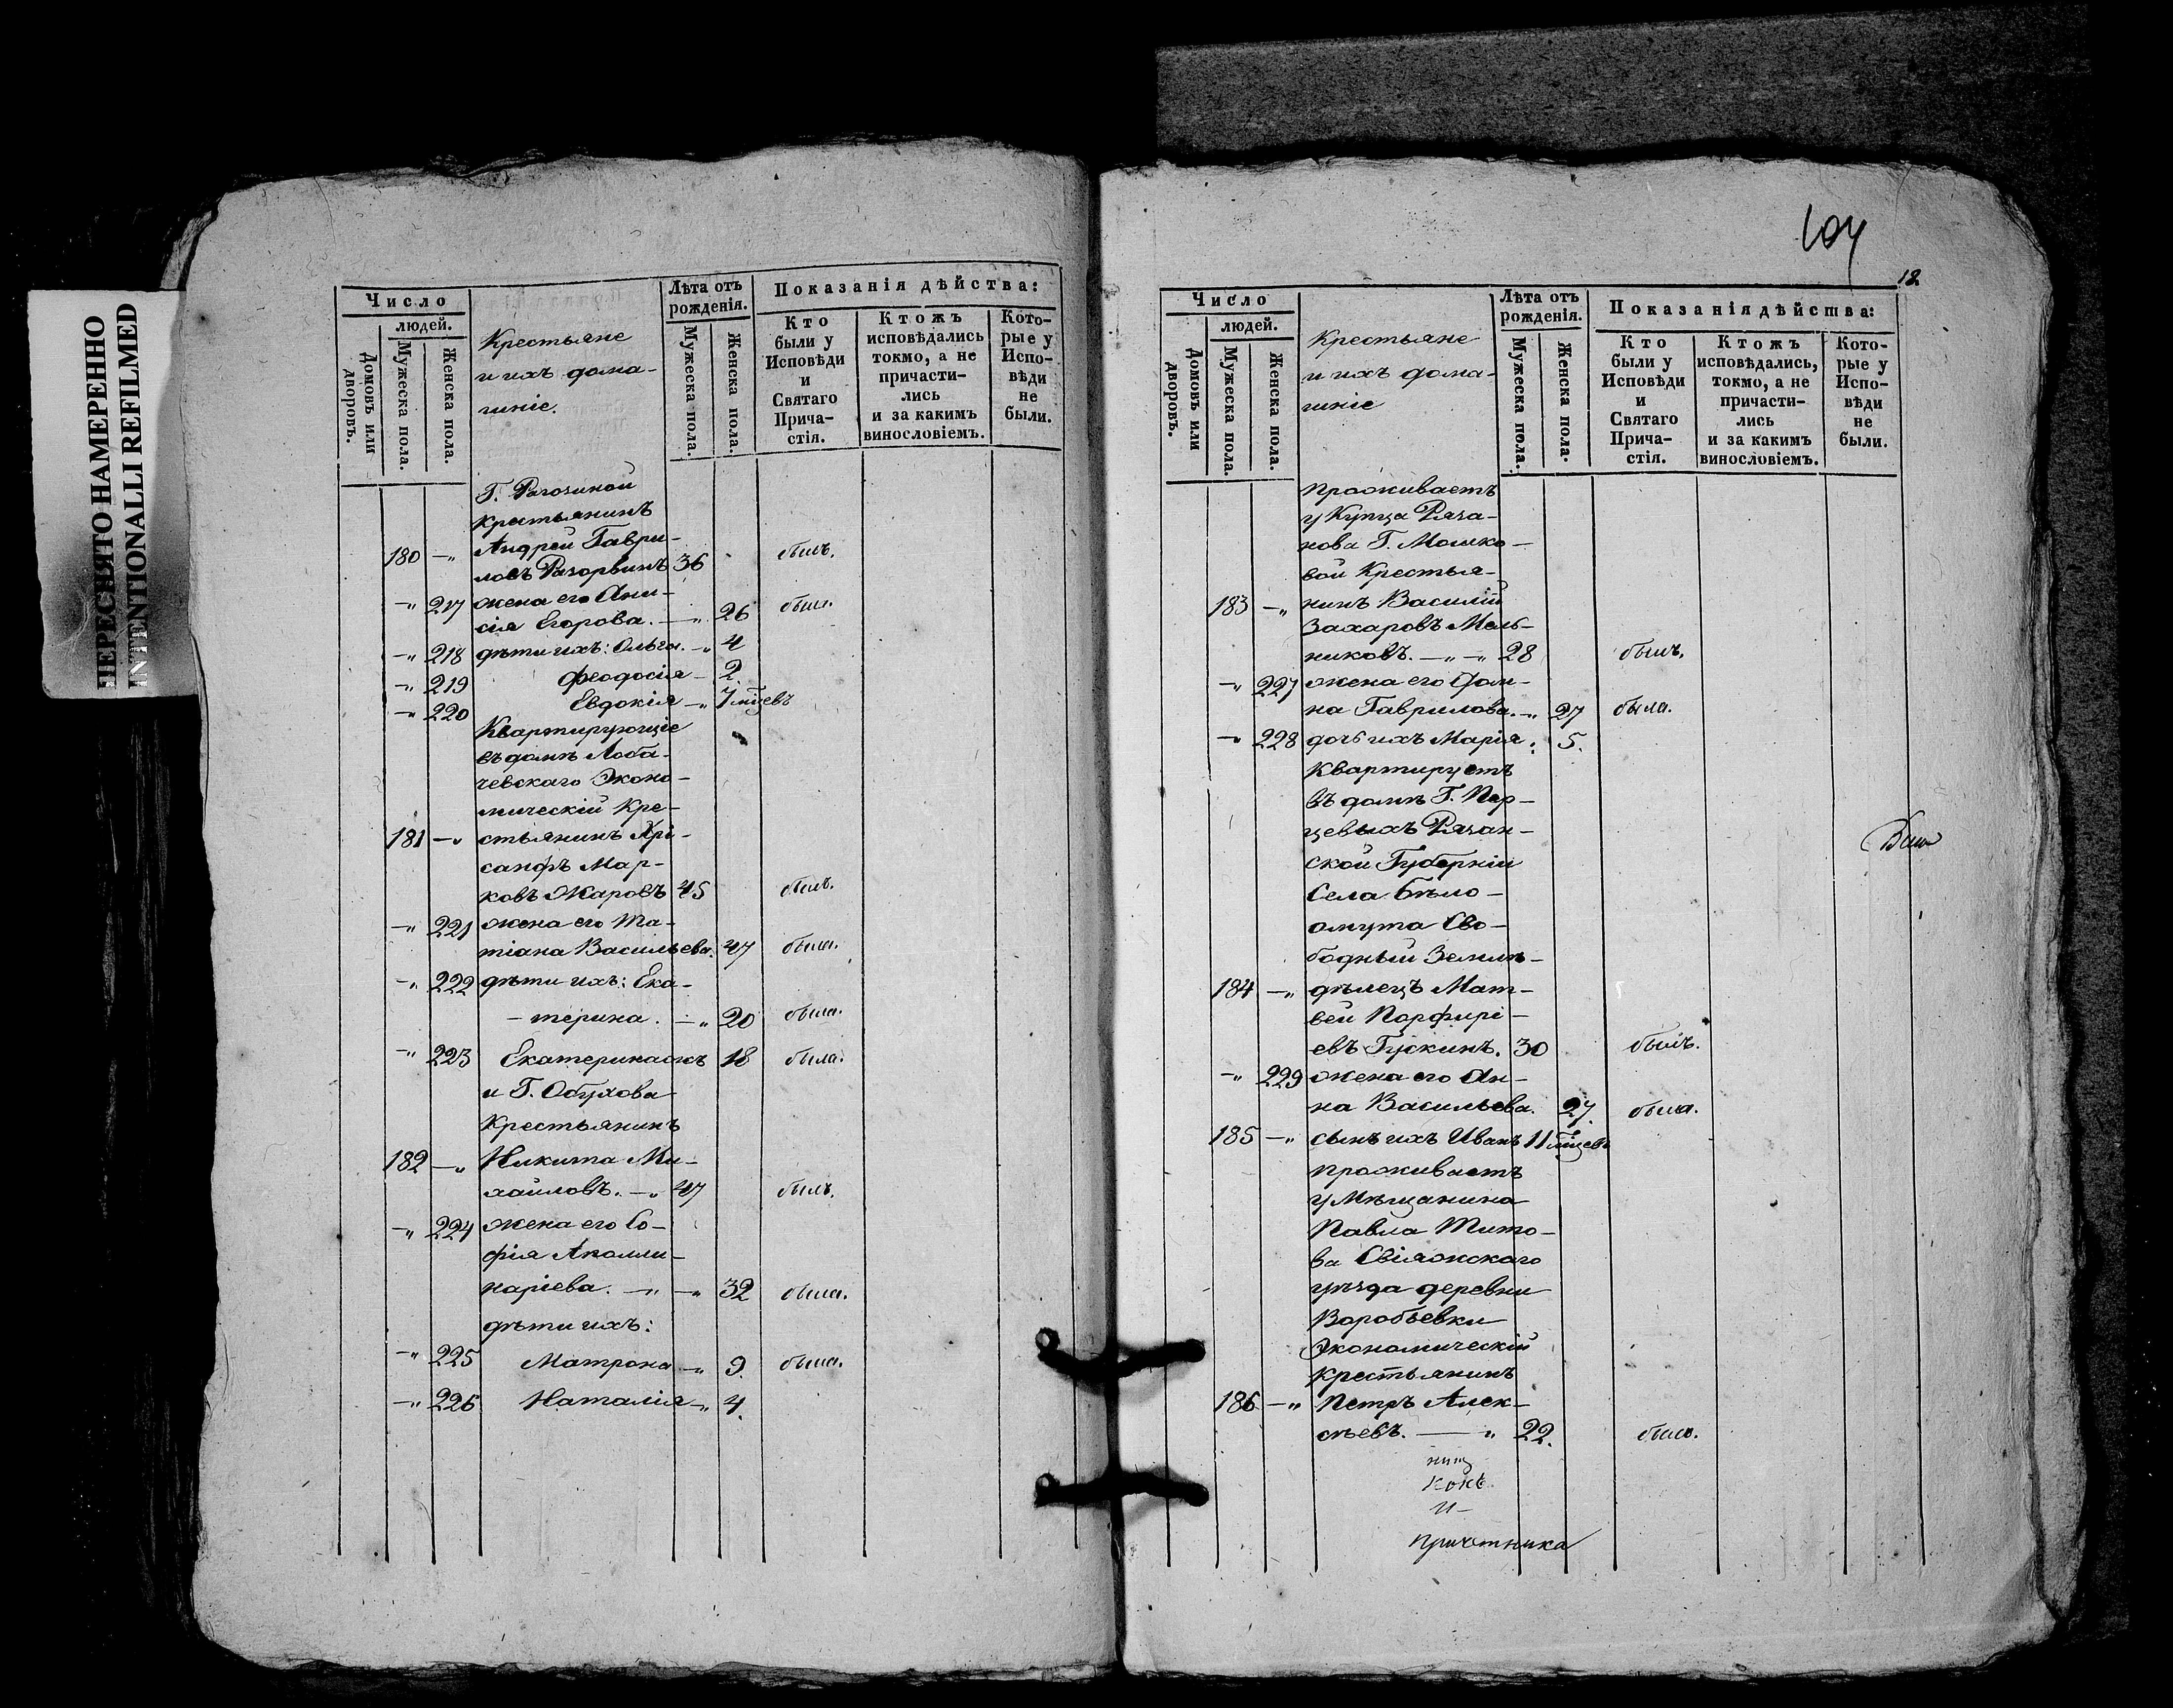 ПЕРЕСНЯТО НАМЕРЕННО
INTENTIONALLI REFILMED
Число
людей.
Домовъ или дворовъ.
Мужеска пола.
Женска пола.
Крестьяне
и ихъ дома-
шніе.
Лѣта отъ
рожденія.
Мужеска пола.
Женска пола.
Показанія дѣйства:
Кто
были у
Исповѣди
и
Святаго
Прича-
стія.
Ктожъ
исповѣдались
токмо, а не
причасти-
лись
и за какимъ
винословіемъ.
Кото-
рые у
Испо-
вѣди
не
были.
Г. Рагозиной
Крестьянинъ
180 —„ Андрей Гаври-
ловъ Разорвинъ 36 былъ.
—„ 217 жена его Ани-
сія Егорова. —„ 26 была.
—„ 218 дѣти ихъ: Ольга. —„ 4
—„ 219 Феодосія — 2.
—„ 220 Евдокія —„ 7 мцевъ
Квартирующіе
въ домѣ Лоба-
чевскаго Эконо-
мическій Кре-
181 —„ стьянинъ Хрі-
санфъ Мар-
ковъ Жаровъ 45 былъ.
—„ 221 жена его Та-
тіана Васильева. 47 была.
—„ 222 дѣти ихъ: Ека-
— терина. —„ 20 была.
—„ 223 Екатерина жъ 18 была.
и Г. Обухова
Крестьянинъ
182 —„ Никита Ми-
хайловъ. —„ 47 былъ.
—„ 224 жена его Со-
фія Аполли-
наріева. —„ —„ 32 была.
дѣти ихъ:
—„ 225 Матрона —„ 9. была.
—„ 226 Наталія —„ 4.
104
18.
Число
людей.
Домовъ или дворовъ.
Мужеска пола.
Женска пола.
Крестьяне
и ихъ дома-
шніе
Лѣта отъ
рожденія.
Мужеска пола.
Женска пола.
Показанія дѣйства:
Кто
были у
Исповѣди
и
Святаго
Прича-
стія.
Ктожъ
исповѣдались,
токмо, а не
причасти-
лись
и за какимъ
винословіемъ.
Кото-
рые у
Испо-
вѣди
не
были.
проживаетъ
у Купца Ряза-
нова Г. Мошко-
вой Крестья-
183 —„ нинъ Василій
Захаровъ Мель-
никовъ. —„ —„ 28 былъ.
—„ 227 жена его Дом-
на Гаврилова. —„ 27 была.
—„ 228 дочь ихъ Марія. 5.
Квартируетъ
въ домѣ Г. Пер-
цевыхъ Рязан-
ской Губерніи
Села Бѣло-
омута Сво-
бодный Земле-
184 —„ дѣлецъ Мат-
вей Порфирі-
евъ Гускинъ. 30 былъ.
—„ 229 жена его Ан-
на Васильева. 27 была.
185 —„ сынъ ихъ Иванъ 11 мцевъ
проживаетъ
у Мѣщанина
Павла Тито-
ва Свіяжскаго
уѣзда деревни
Воробьевки
Экономическій
Крестьянинъ
186 —„ Петръ Алек-
сѣевъ. —„ 22. былъ.
причетника